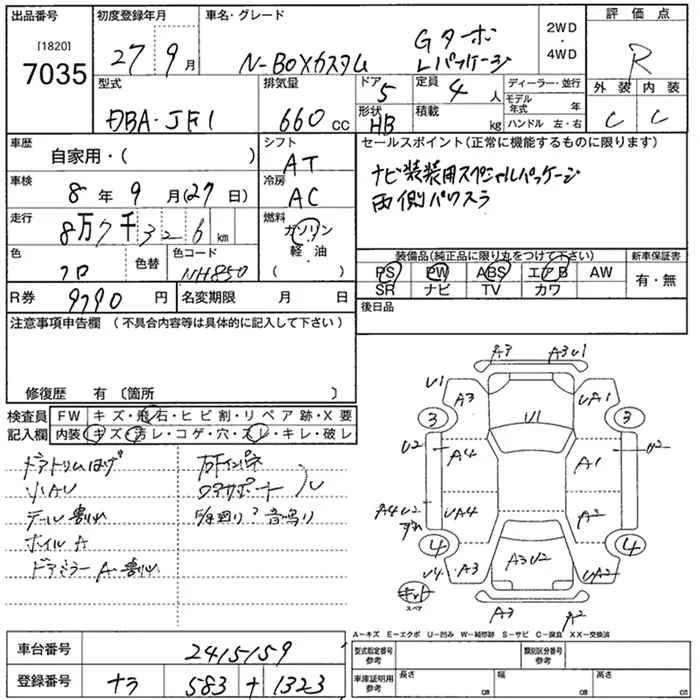 出品番号 初度登録年月 車名・グレード 評価点
[1820]
7035
27年9月
N-BOXカスタム Gターボ Lパッケージ
2WD・4WD
R
型式 排気量 ドア 定員 ディーラー・並行 外装 内装
DBA-JF1 660cc 5 4人
モデル年式 年
形状 積載
HB kg ハンドル 左・右
C C
車歴 シフト セールスポイント(正常に機能するものに限ります)
自家用・( ) AT
車検 冷房
8年9月(27日) AC
ナビ装装用スペシャルパッケージ
両側パワスラ
走行 燃料
8万7千326km ガソリン・軽油・( )
色 色替 色コード
クロ NH850
装備品(純正品に限り丸をつけて下さい) 新車保証書
PS PW ABS エアB AW 有・無
SR ナビ TV カワ
R券 9790円 名変期限 月 日
後日品
注意事項申告欄 (不具合内容等は具体的に記入して下さい)
修復歴 有 〔箇所 〕
検査員 FW キズ・飛石・ヒビ割・リペア跡・X要
記入欄 内装 キズ・汚レ・コゲ・穴・スレ・キレ・破レ
ドアトリムはげ
小AU
テール割れ
ホイルA
ドアミラーA・割れ
右Fインパネ
コアサポート
音鳴り
A3 A3U1
U1 A3 UA1
3 U1 3
U2 A4 A1 U2
A4U2 UA4 A2
4 4
A3U2
U4 A3 UA2
キット
スペア
A3 A2
A-キズ E-エクボ U-凹み W-補修跡 S-サビ C-腐食 XX-交換済
車台番号 2415159
登録番号 ナラ 583 ナ 1323
型式指定番号 参考 類別区分番号 参考
車庫証明用 参考 長さ cm 幅 cm 高さ cm